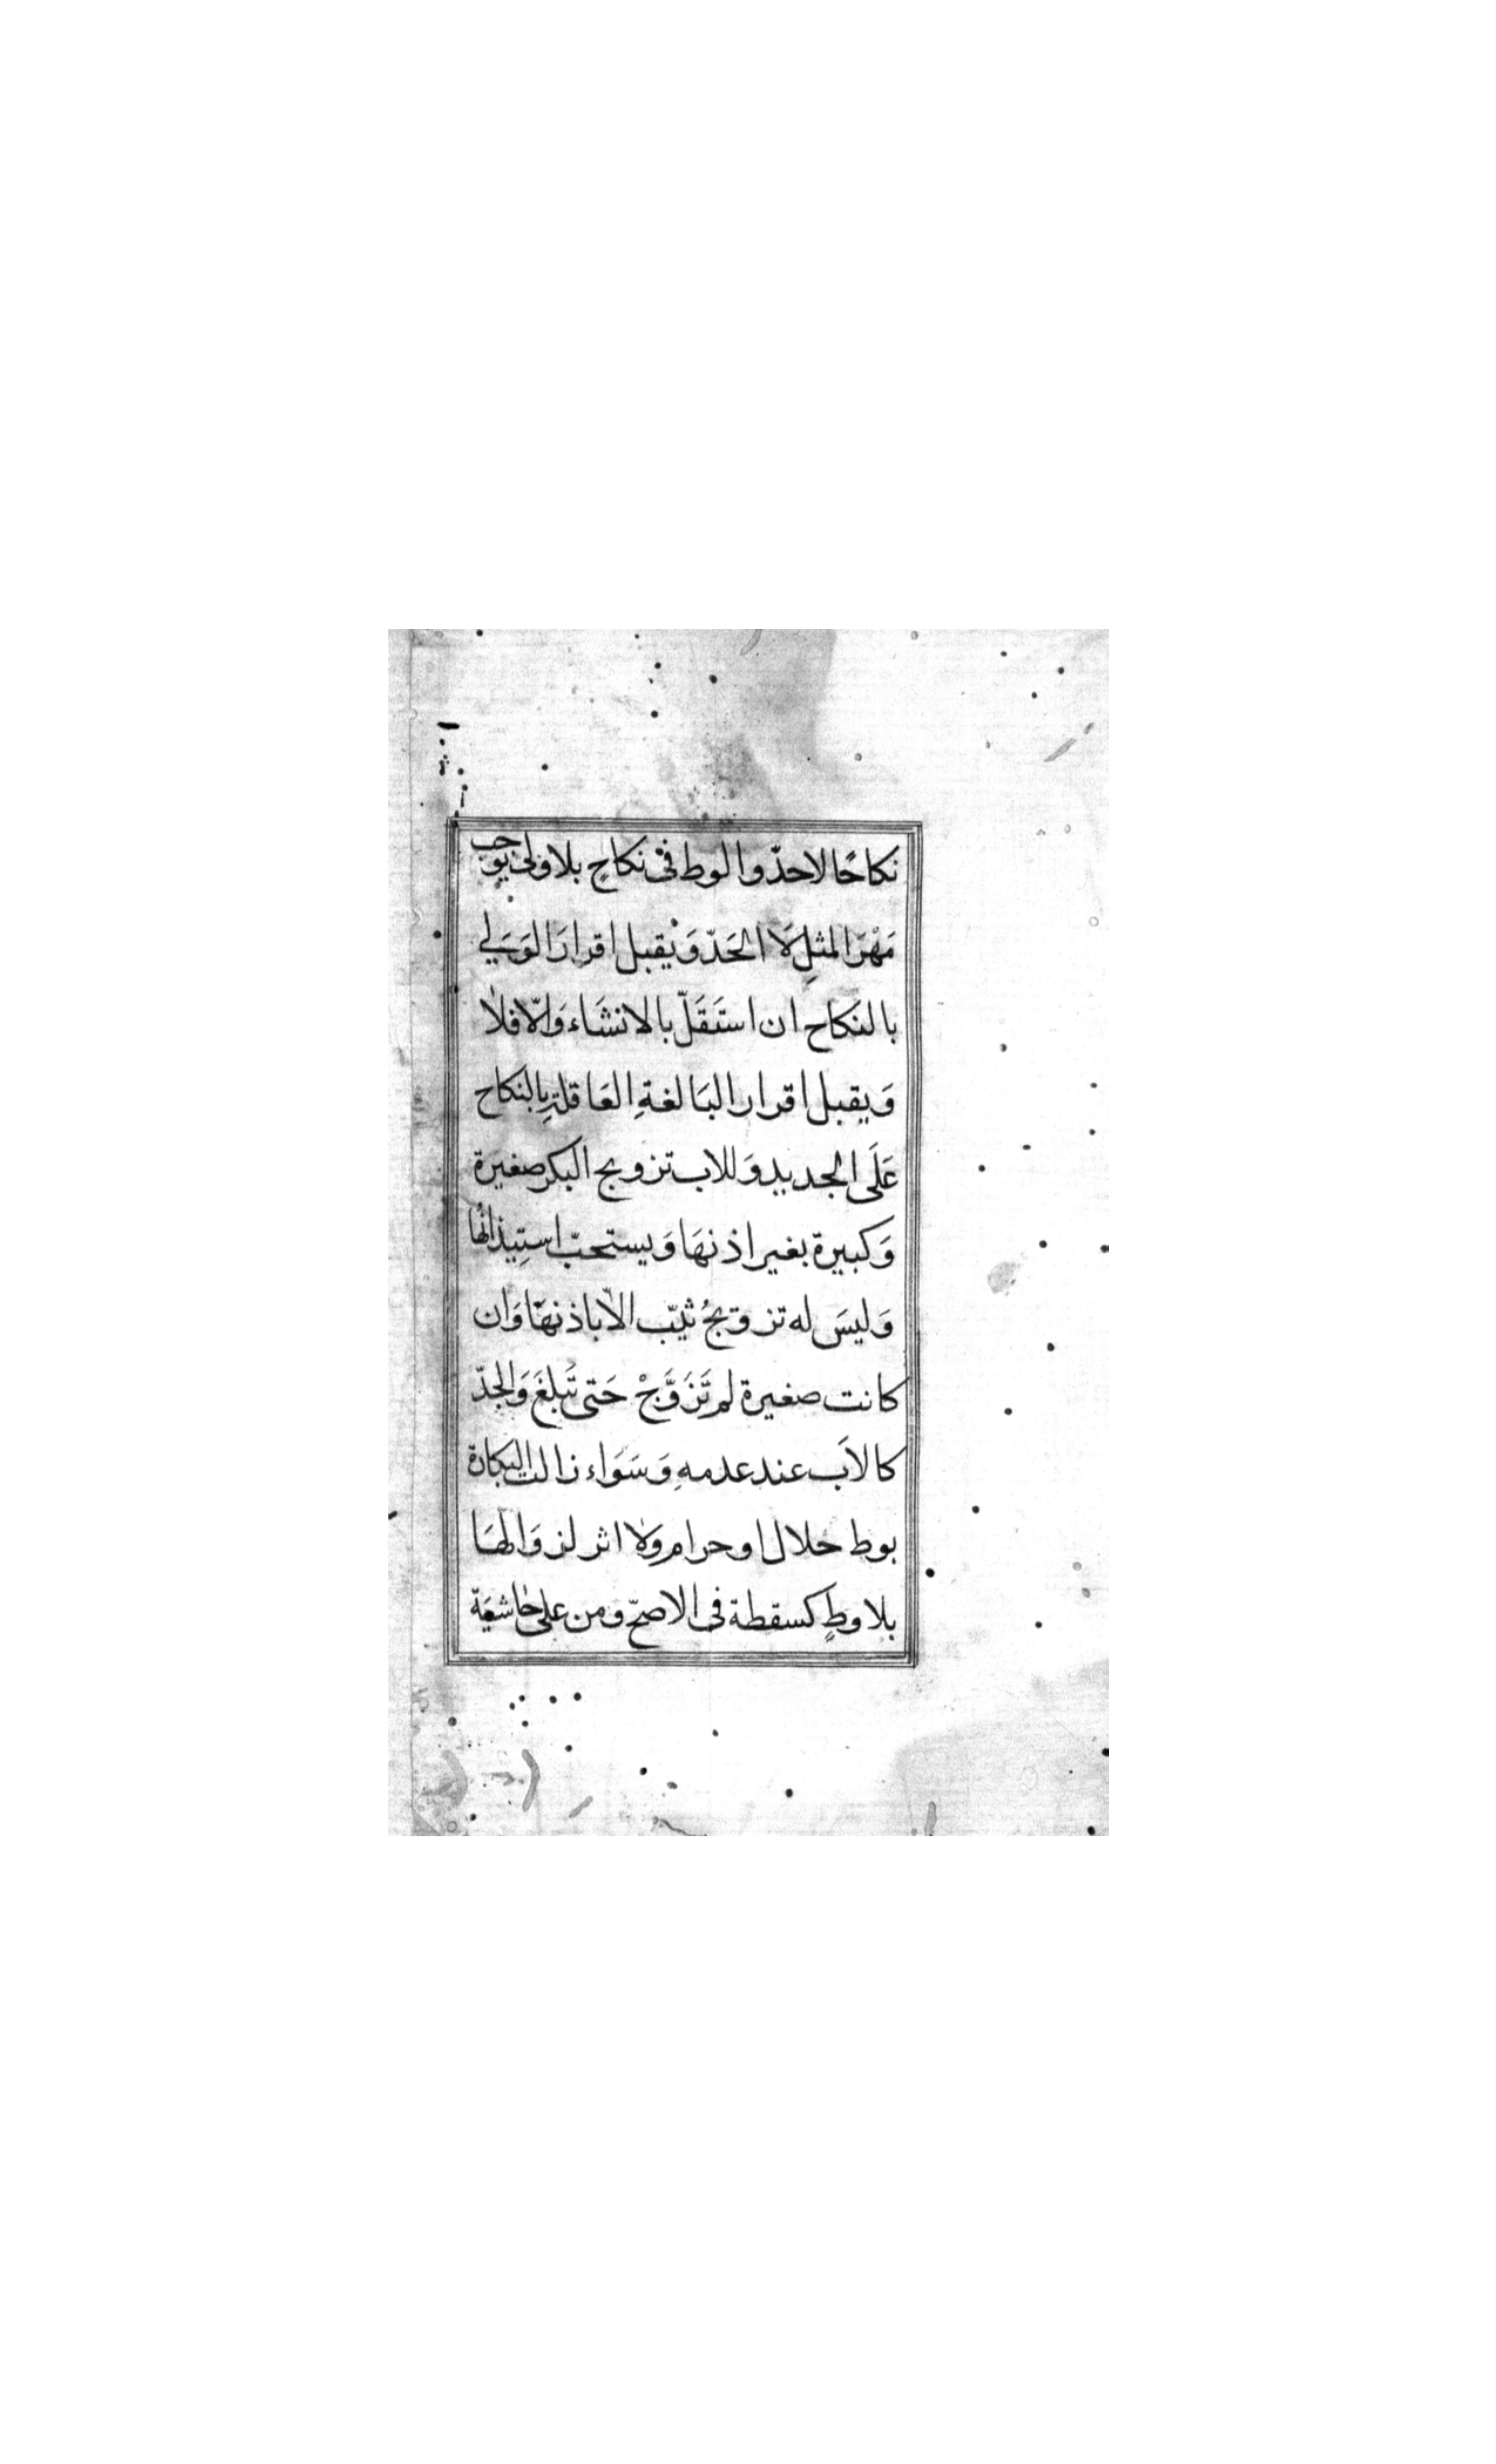 نكاحًا لاحدّ والوط فى نكاحٍ بلا ولى يوجب
مَهْرَ المثلِ لَا الحَدّ وَيقبل اقرارَ الوَلي
بالنكاح ان استَقَلّ بالانشَاء وَالّا فلا
وَيقبل اقرار البَالغةِ العَاقلةِ بالنكاح
عَلَى الجديد وَللاب تزويج البكر صغيرة
وَكبيرة بغير اذنهَا وَيستحبّ استِيذانُها
وَليسَ له تزويجُ ثيّب الّا باذنهَا وَان
كانت صغيرة لم تَزَوَّجْ حَتى تَبلغَ وَالجدّ
كالاَب عند عدمهِ وَسَوَاء زالت البكارة
بوط حلال او حرام ولا اثر لزوَالهَا
بلا وطٍ كسقطة فى الاصحّ ومن على حاشيَة